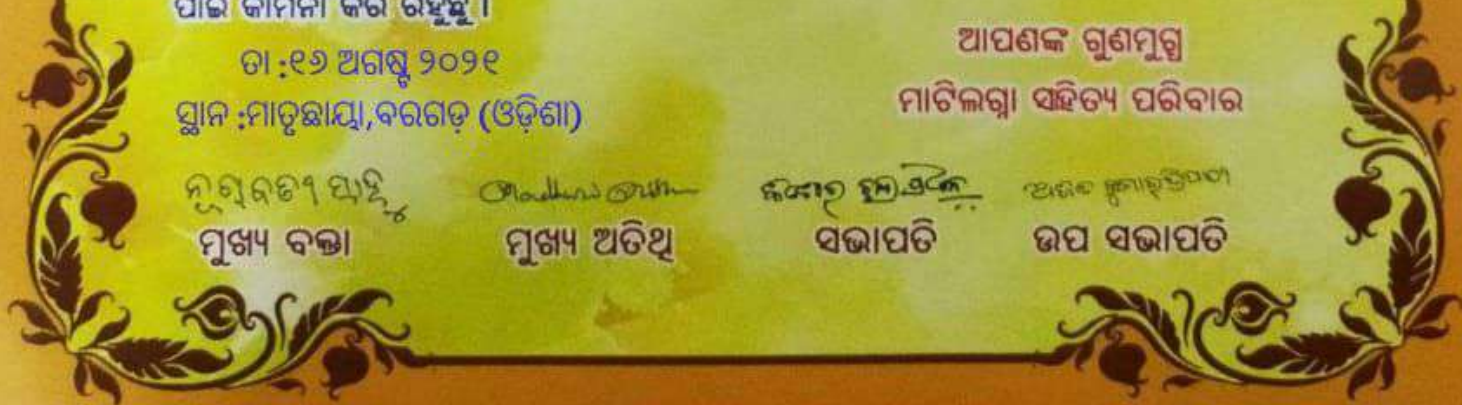 ପାଇଁ କାମନା କରି ରହୁଛୁ ।
ତା :୧୬ ଅଗଷ୍ଟ ୨୦୨୧
ସ୍ଥାନ :ମାତୃଛାୟା,ବରଗଡ଼ (ଓଡ଼ିଶା)
ଆପଣଙ୍କ ଗୁଣମୁଗ୍ଧ
ମାଟିଲଗ୍ନା ସାହିତ୍ୟ ପରିବାର
ମୁଖ୍ୟ ବକ୍ତା
ମୁଖ୍ୟ ଅତିଥି
ସଭାପତି
ଉପ ସଭାପତି